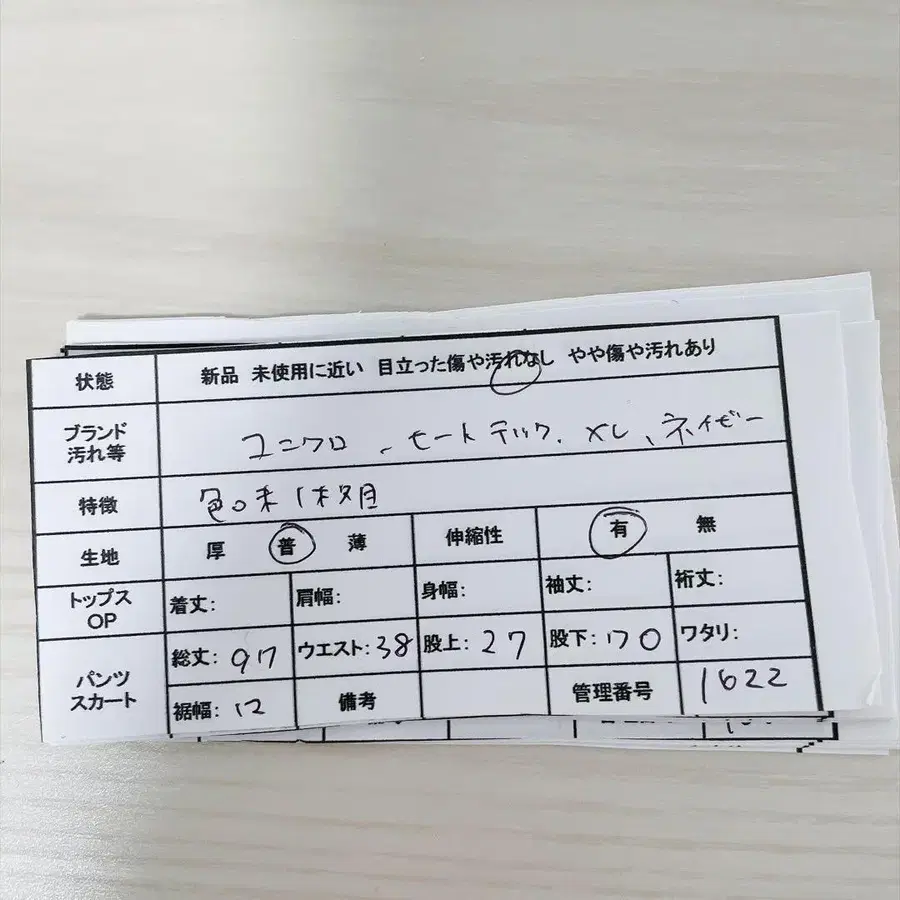 状態 新品 未使用に近い 目立った傷や汚れなし やや傷や汚れあり
ブランド
汚れ等 ユニクロ、ヒートテック、XL、ネイビー
特徴
生地 厚 普 薄 伸縮性 有 無
トップス
OP 着丈: 肩幅: 身幅: 袖丈: 裄丈:
パンツ
スカート 総丈: 97 ウエスト: 38 股上: 27 股下: 70 ワタリ:
裾幅: 12 備考 管理番号 1622